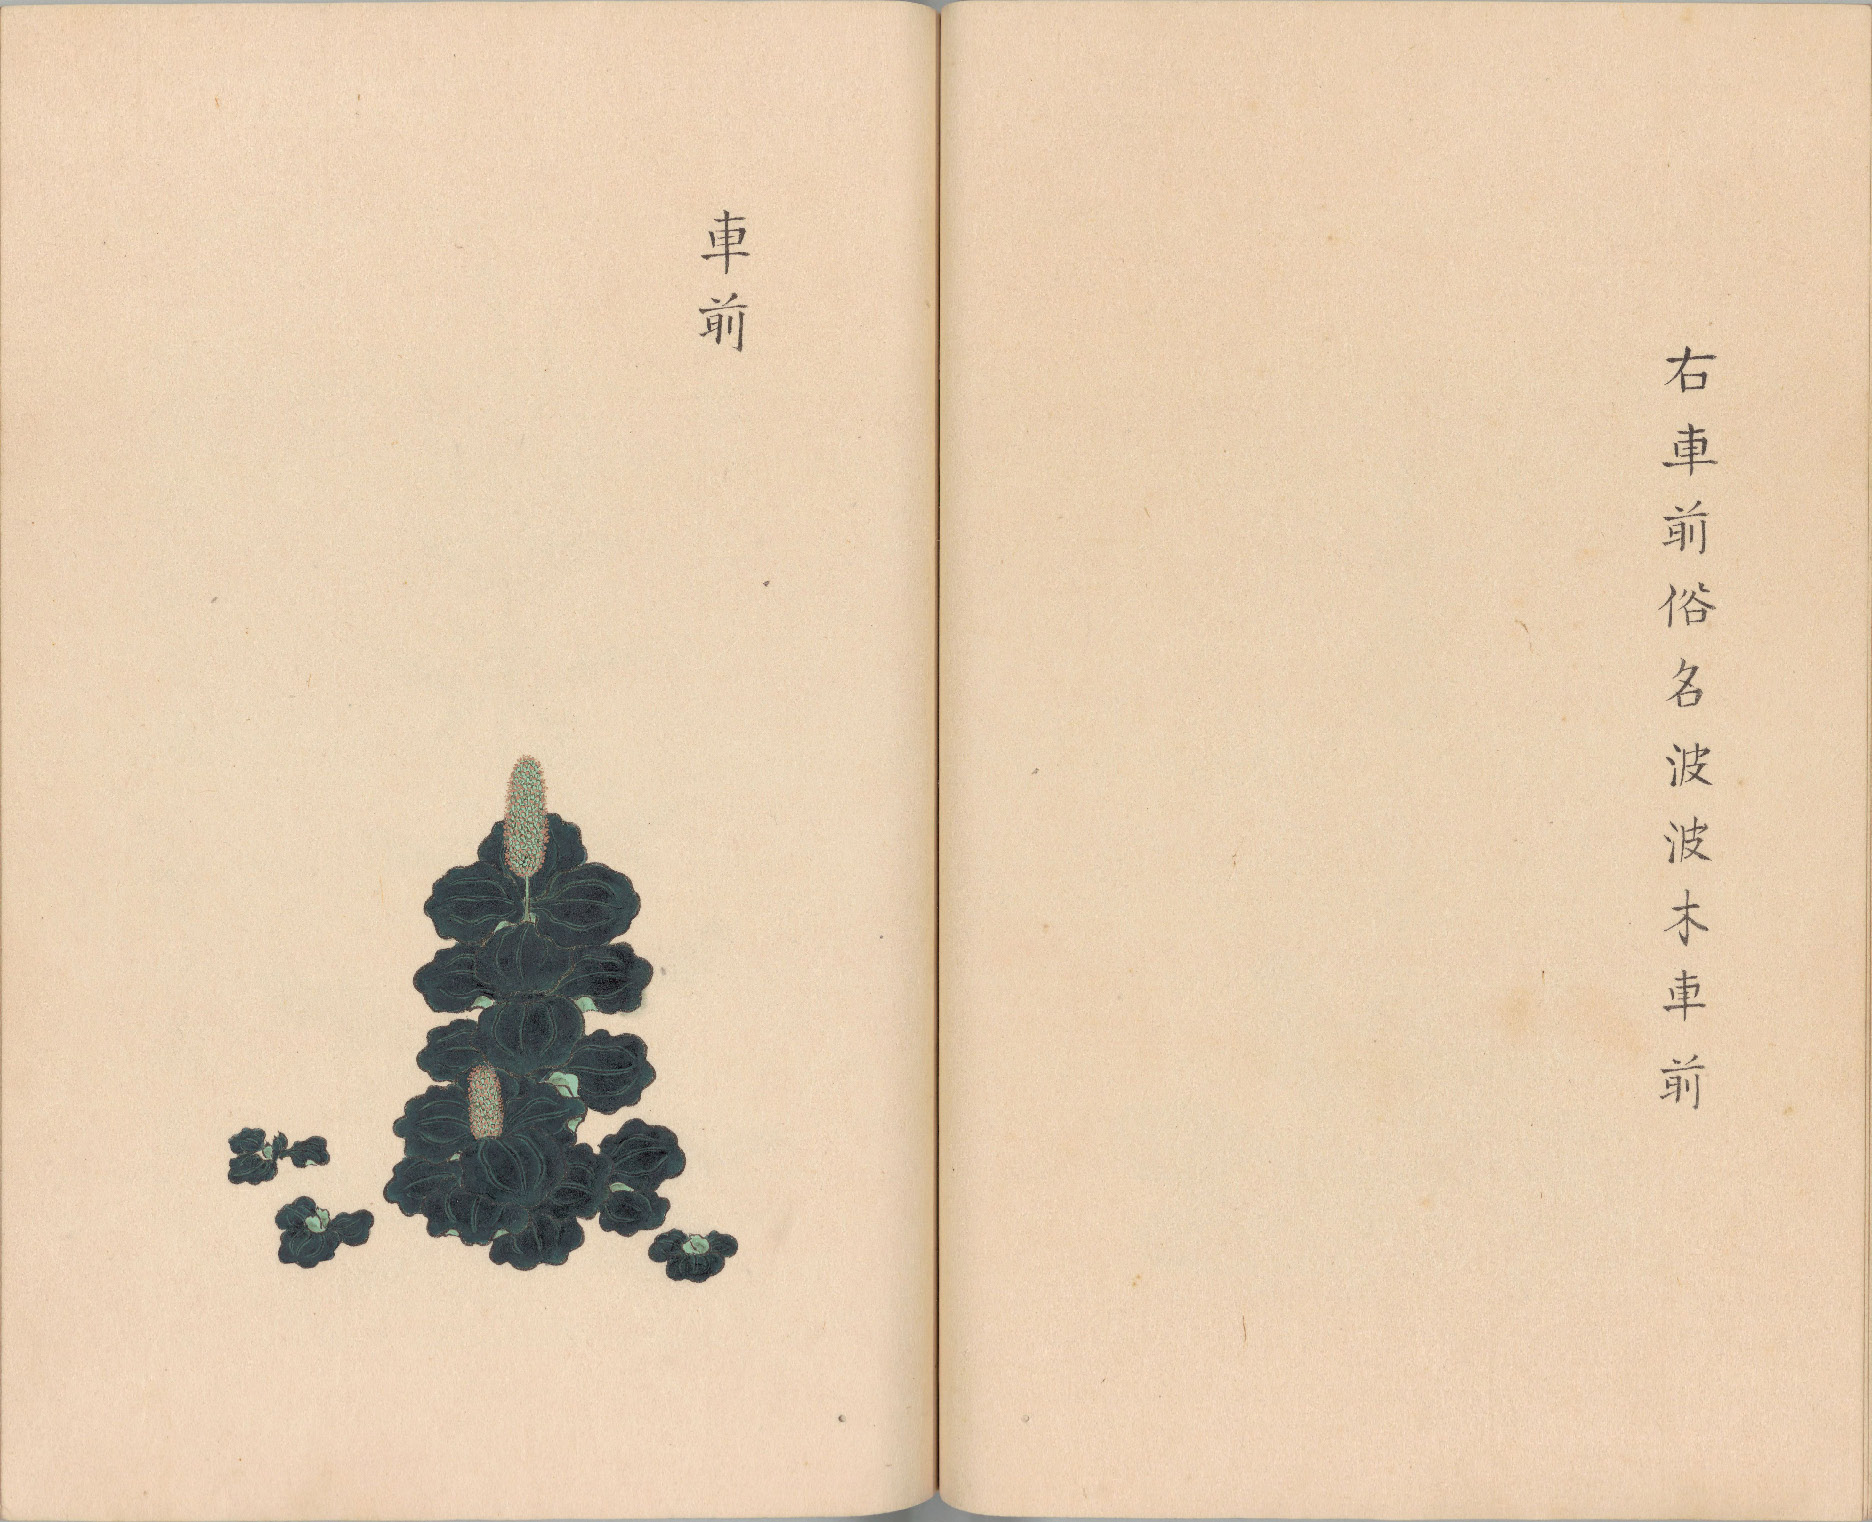 右車前俗名波波木車前
車前